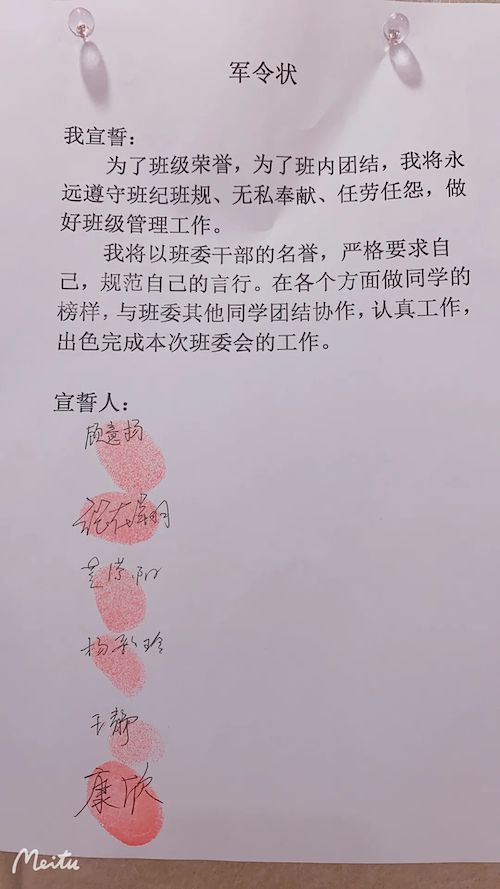 军令状
我宣誓：
为了班级荣誉，为了班内团结，我将永
远遵守班纪班规、无私奉献、任劳任怨，做
好班级管理工作。
我将以班委干部的名誉，严格要求自
己，规范自己的言行。在各个方面做同学的
榜样，与班委其他同学团结协作，认真工作，
出色完成本次班委会的工作。
宣誓人：
顾意扬
杨彩玲
王静
康欣
Meitu